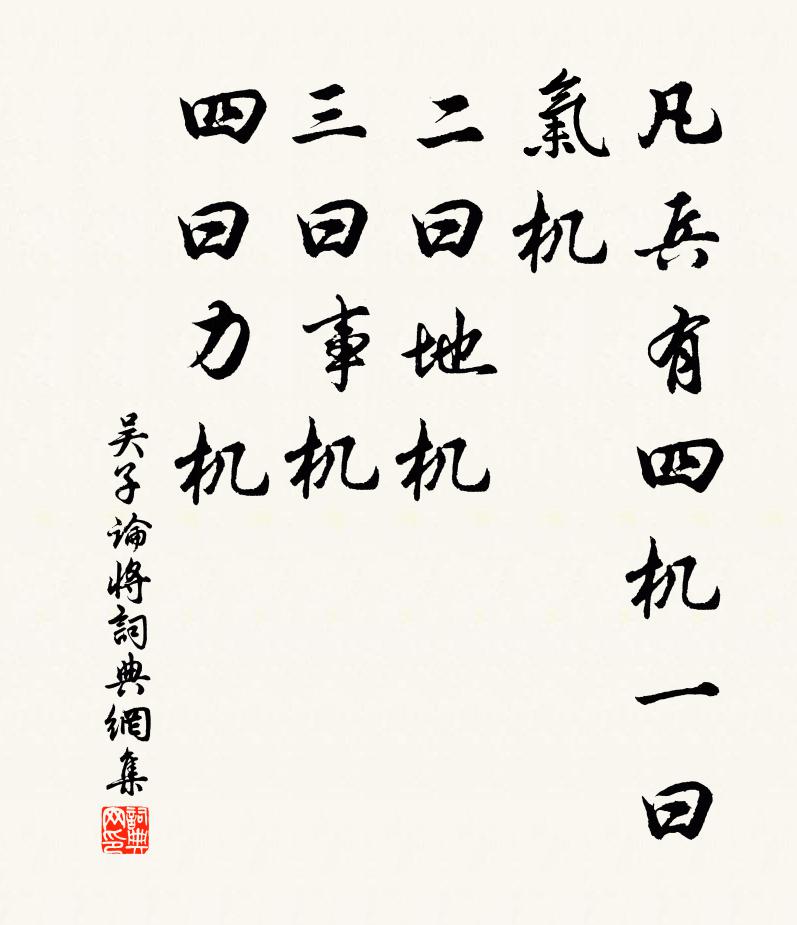 凡兵有四机一曰
氣机
二曰地机
三曰事机
四曰力机
吴子論将詞典網集
詞典网印